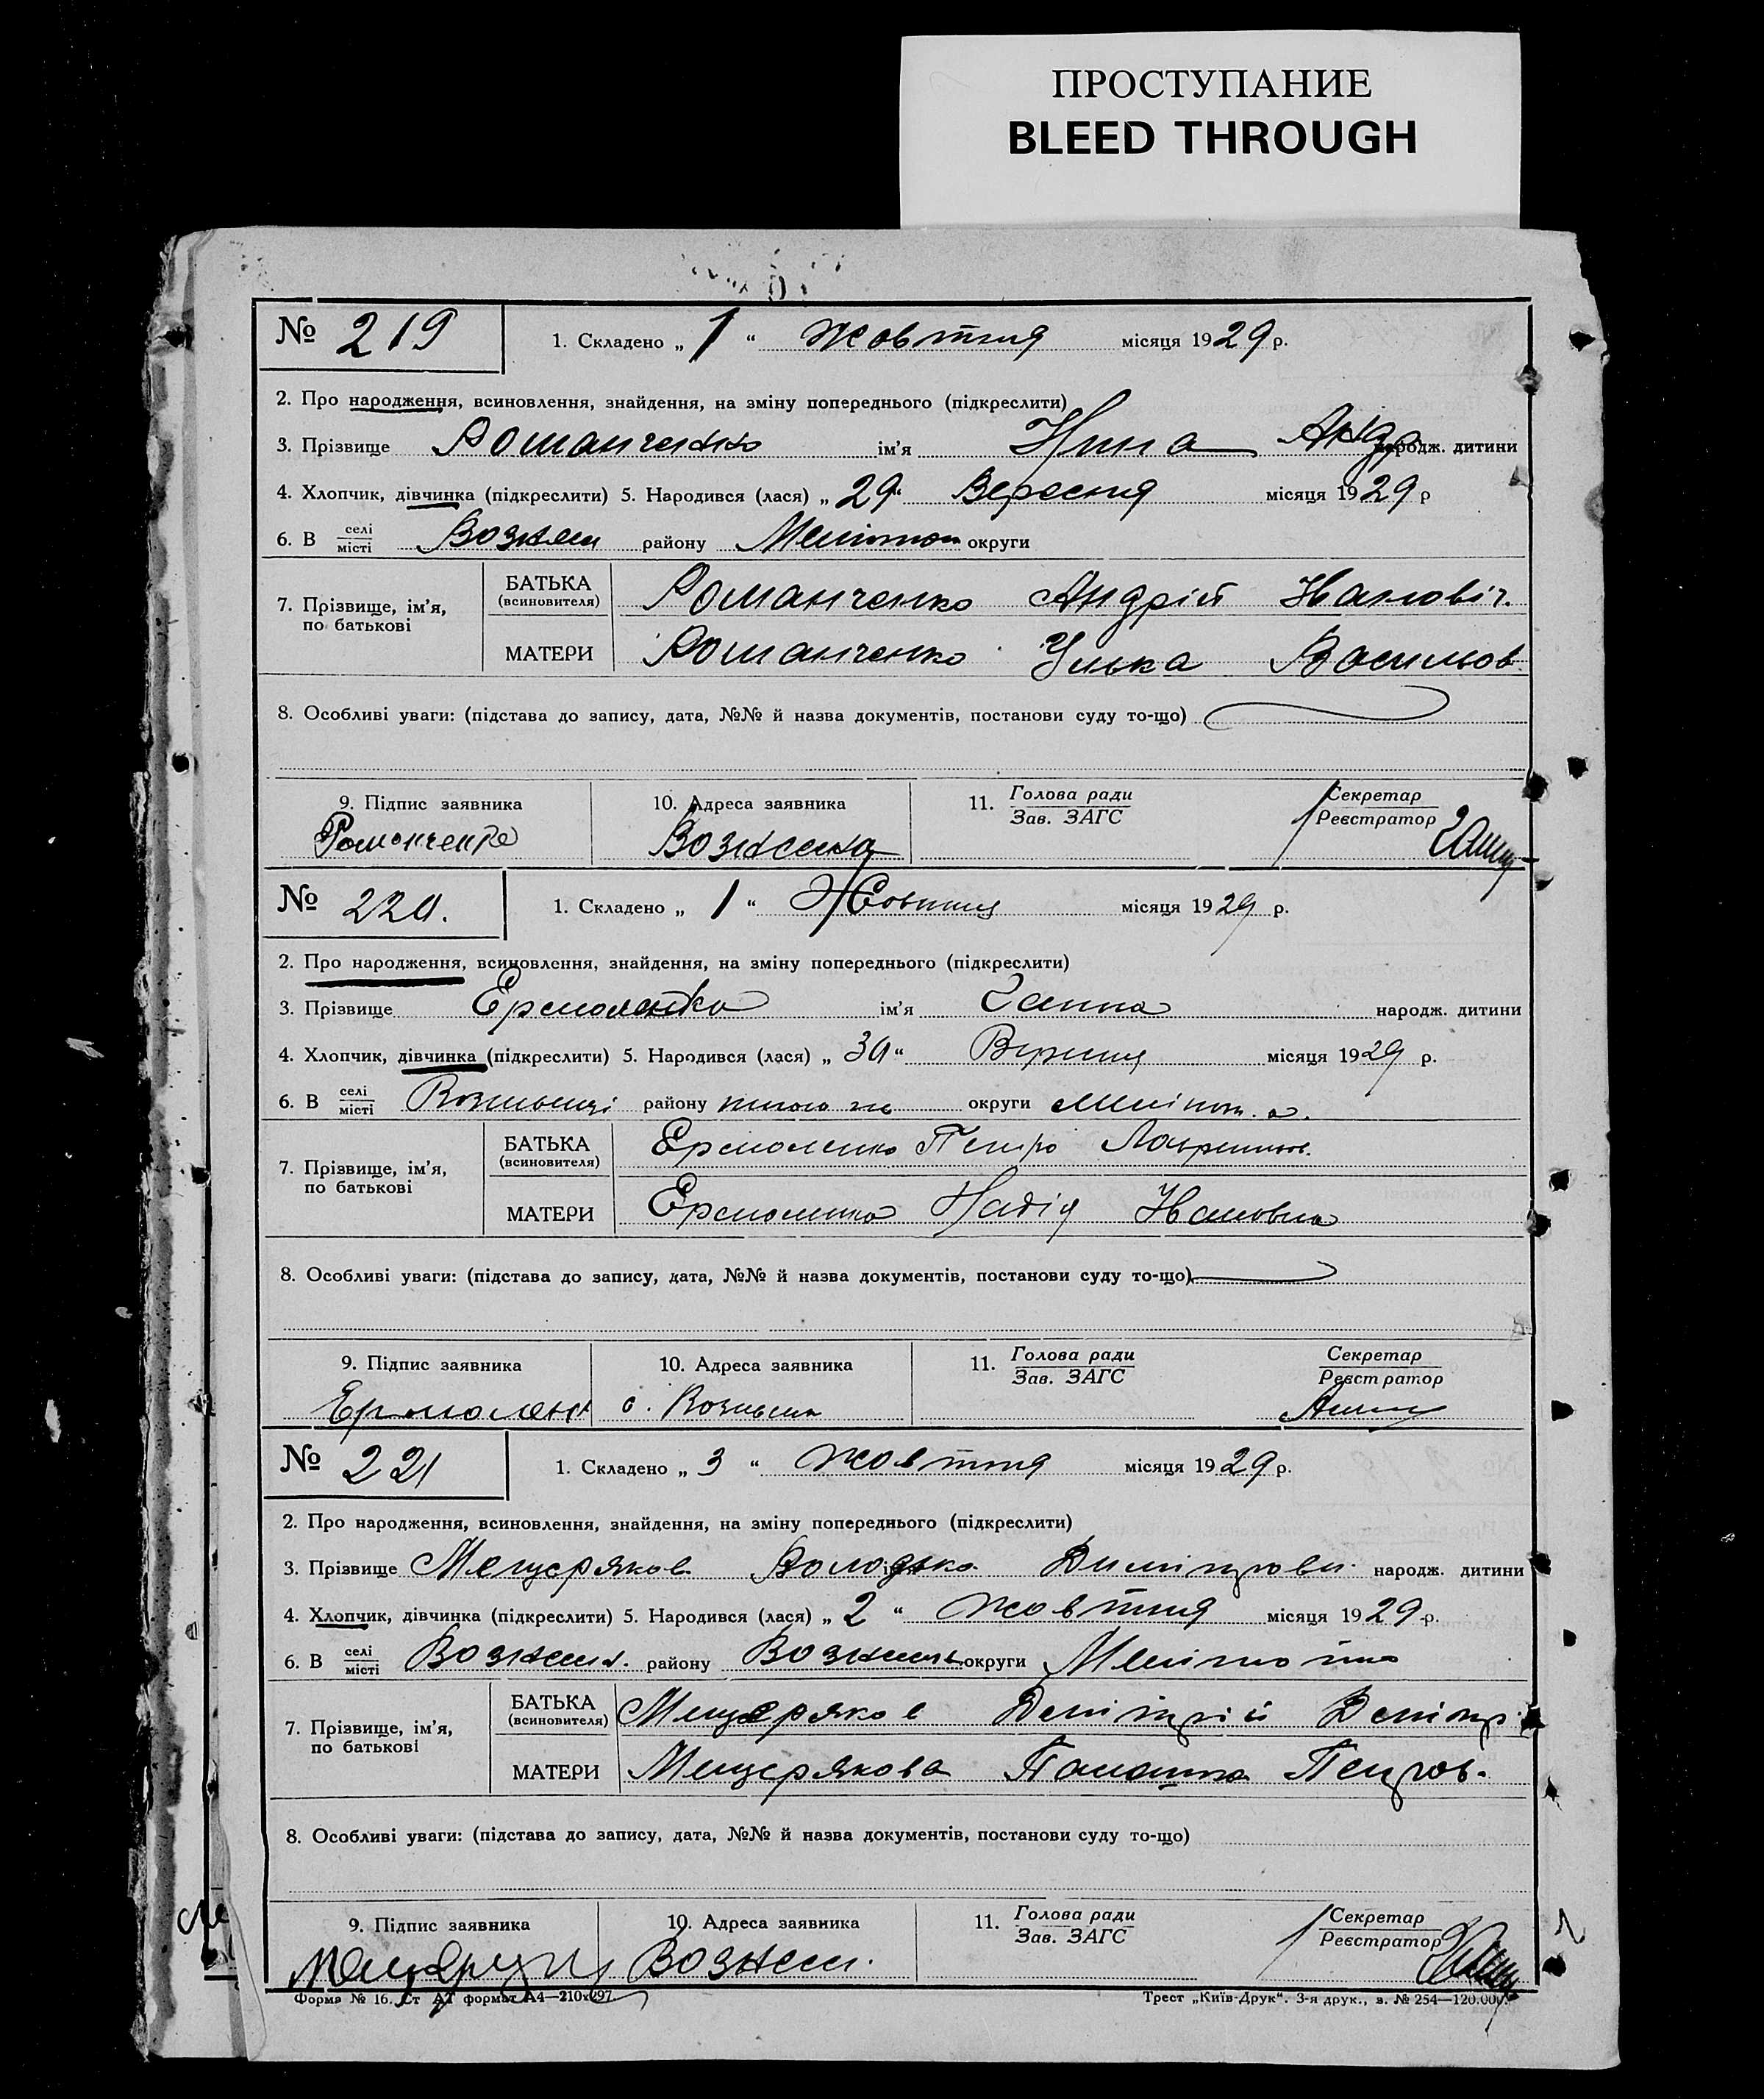 ПРОСТУПАНИЕ
BLEED THROUGH
№ 219 1. Складено „ 1 “ жовтня місяця 1929 р.
2. Про народження, всиновлення, знайдення, на зміну попереднього (підкреслити)
3. Прізвище Романченко ім'я Нина Андр народж. дитини
4. Хлопчик, дівчинка (підкреслити) 5. Народився (лася) „ 29 “ Вересня місяця 1929 р
6. В селі місті району округи
7. Прізвище, ім'я, по батькові
БАТЬКА (всиновителя) Романченко Андрій Іванович.
МАТЕРИ Романченко Улька Васильов.
8. Особливі уваги: (підстава до запису, дата, №№ й назва документів, постанови суду то-що)
9. Підпис заявника 10. Адреса заявника 11. Голова ради Зав. ЗАГС Секретар Реєстратор
Романченко
№ 220. 1. Складено „ 1 “ Жовтня місяця 1929 р.
2. Про народження, всиновлення, знайдення, на зміну попереднього (підкреслити)
3. Прізвище Ермоленко ім'я Ганна народж. дитини
4. Хлопчик, дівчинка (підкреслити) 5. Народився (лася) „ 30 “ Вересня місяця 1929 р.
6. В селі місті району того ж округи
7. Прізвище, ім'я, по батькові
БАТЬКА (всиновителя) Ермоленко Петро
МАТЕРИ Ермоленко Надія Івановна
8. Особливі уваги: (підстава до запису, дата, №№ й назва документів, постанови суду то-що)
9. Підпис заявника 10. Адреса заявника 11. Голова ради Зав. ЗАГС Секретар Реєстратор
Ермолен с.
№ 221 1. Складено „ 3 “ жовтня місяця 1929 р.
2. Про народження, всиновлення, знайдення, на зміну попереднього (підкреслити)
3. Прізвище Мещеряков Володька народж. дитини
4. Хлопчик, дівчинка (підкреслити) 5. Народився (лася) „ 2 “ жовтня місяця 1929 р.
6. В селі місті Вознесен. району округи
7. Прізвище, ім'я, по батькові
БАТЬКА (всиновителя) Мещеряков Демітрій Демітр
МАТЕРИ Мещерякова Палашка Петров.
8. Особливі уваги: (підстава до запису, дата, №№ й назва документів, постанови суду то-що)
9. Підпис заявника 10. Адреса заявника 11. Голова ради Зав. ЗАГС Секретар Реєстратор
Вознесен.
Форма № 16. Ст АТ формат А4—210х297 Трест „Київ-Друк“. 3-я друк., з. № 254—120.000.